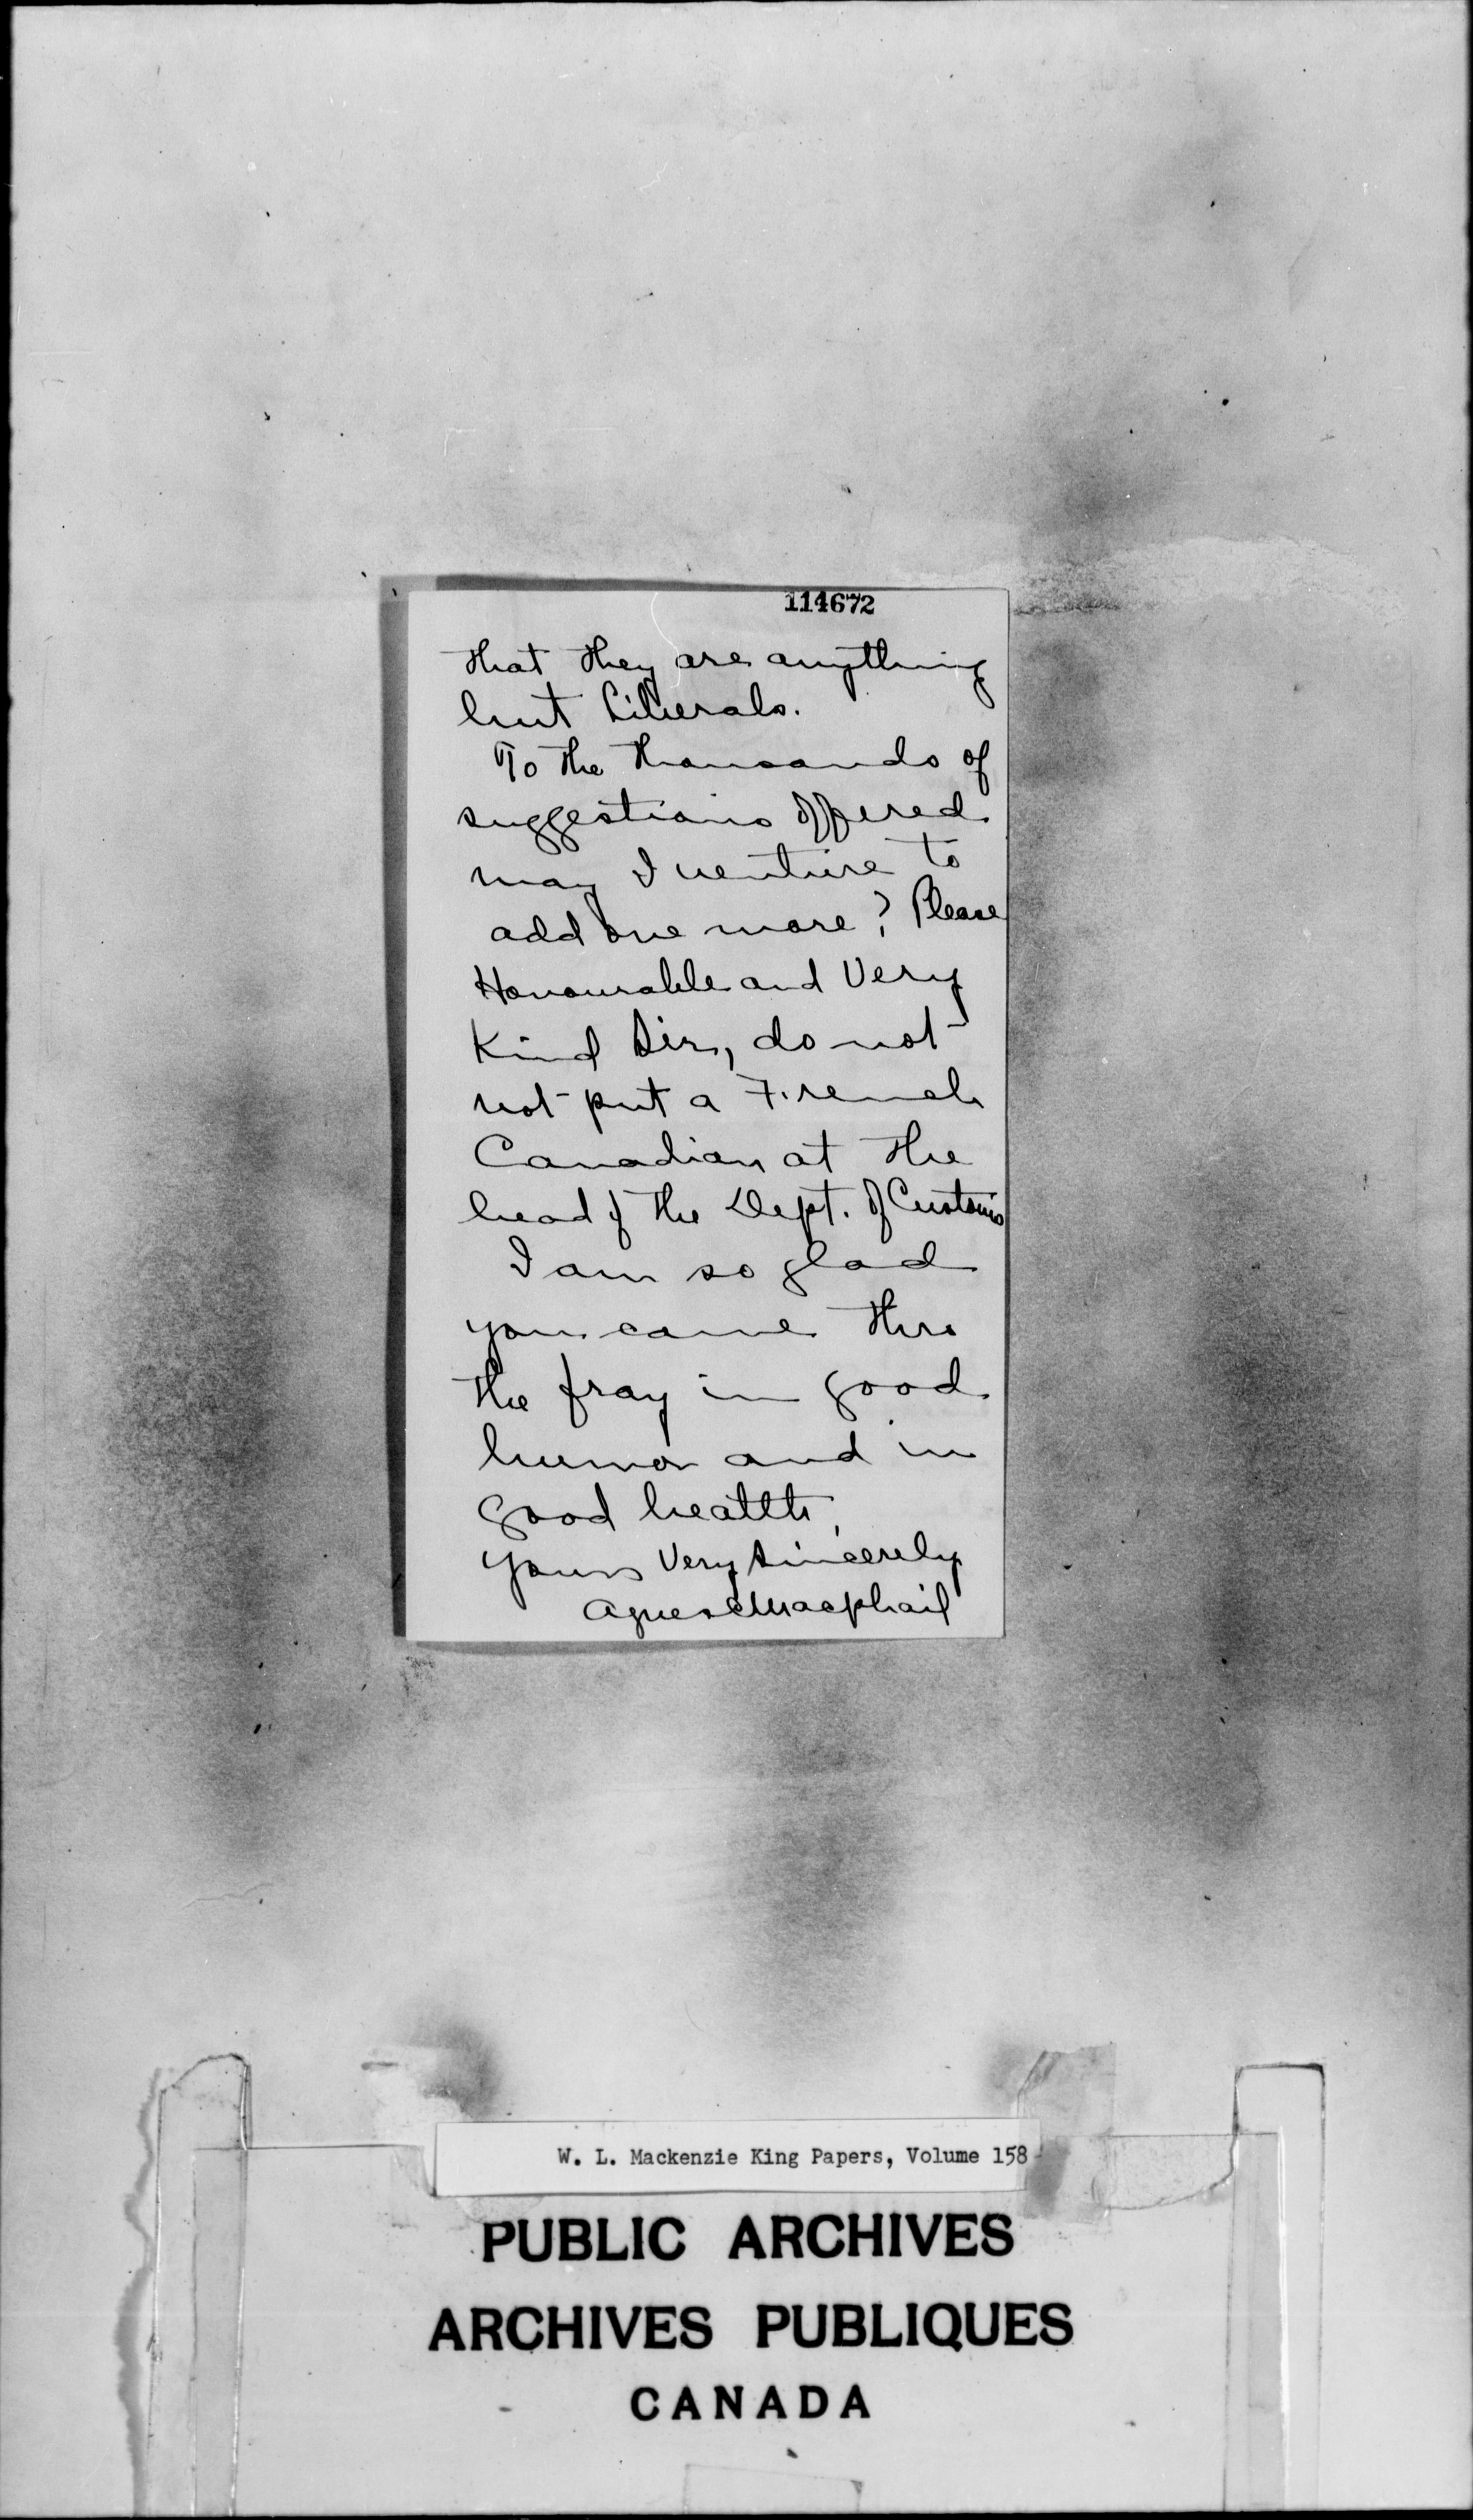 114672
that they are anything
but Liberals.
To the thousands of
suggestions offered
may I venture to
add one more? Please
Honourable and Very
Kind Sir, do not
not put a French
Canadian at the
head of the Dept. of Customs
I am so glad
you came thro
the fray in good
humor and in
good health,
Yours Very Sincerely
Agnes C Macphail
W. L. Mackenzie King Papers, Volume 158
PUBLIC ARCHIVES
ARCHIVES PUBLIQUES
CANADA